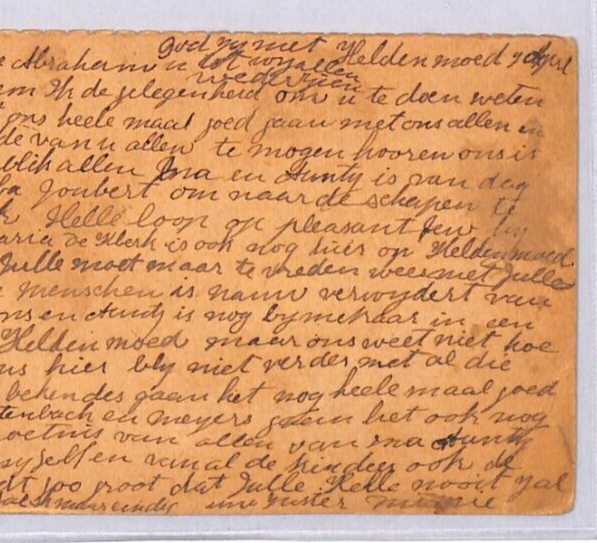 god zy met Heldenmoed 7 April
Abraham u tot wy
weder zien
Ik de gelegenheid om u te doen weten
ons heele maal goed gaan met ons allen en
de van u allen te mogen hooren ons is
blih allen Ina en Aunty is van dag
Joubert om naar de schapen te
Helle loop op pleasant
aria De Klerk is ook nog hier op Heldenmoed
Julle moet maar te vreden wees met Julle
menschen is namu verwydert van
ons en Aunty is nog by mekaar in een
Heldenmoed maar ons weet niet hoe
ns hier bly niet verder met al die
bekendes gaan het nog heele maal goed
tenbach en meyers gaan het ook nog
oetnis van allen van ma Aunty
syzelf en van al de kinders ook de
dt zoo groot dat Julle Helle nooit zal
maar eindig uwe zuster